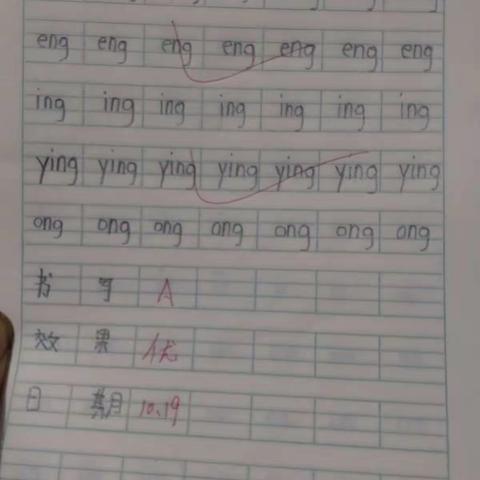 eng eng eng eng eng eng eng
ing ing ing ing ing ing ing
ying ying ying ying ying ying ying
ong ong ong ong ong ong ong
书 写 A
效 果 优
日 期 10.19